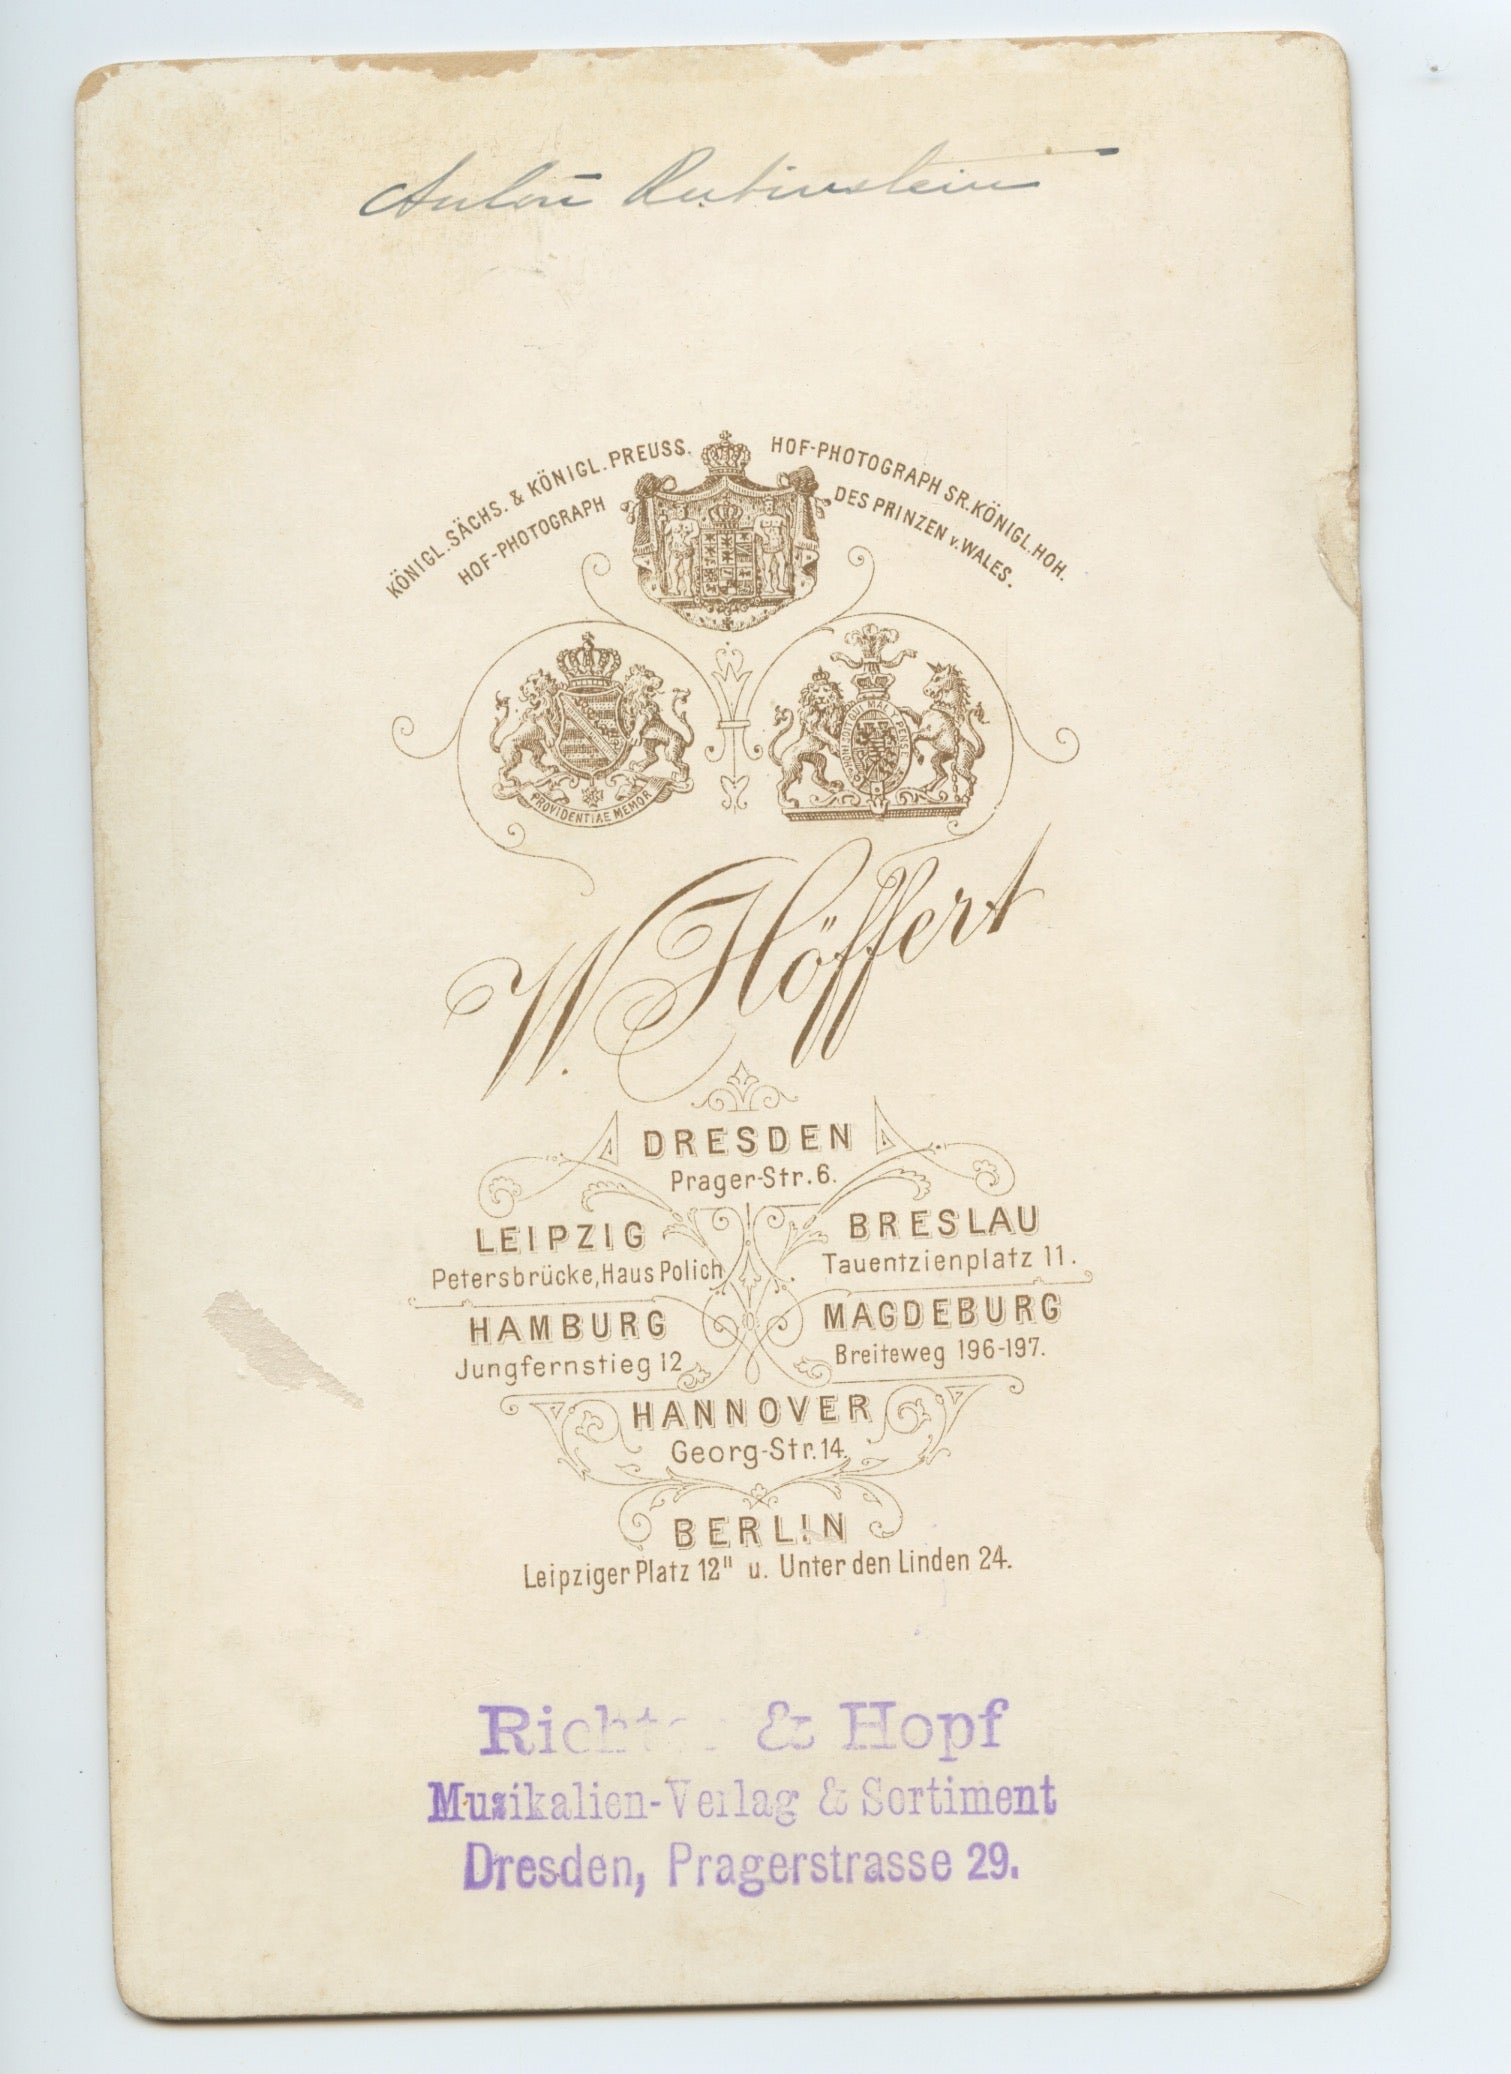 Anton Rubinstein
KÖNIGL. SÄCHS. & KÖNIGL. PREUSS.
HOF-PHOTOGRAPH
HOF-PHOTOGRAPH SR. KÖNIGL. HOH.
DES PRINZEN v. WALES.
PROVIDENTIAE MEMOR
W. Höffert
DRESDEN
Prager-Str. 6.
LEIPZIG
Petersbrücke, Haus Polich
BRESLAU
Tauentzienplatz 11.
HAMBURG
Jungfernstieg 12
MAGDEBURG
Breiteweg 196-197.
HANNOVER
Georg-Str. 14.
BERLIN
Leipziger Platz 12" u. Unter den Linden 24.
Richter & Hopf
Musikalien-Verlag & Sortiment
Dresden, Pragerstrasse 29.